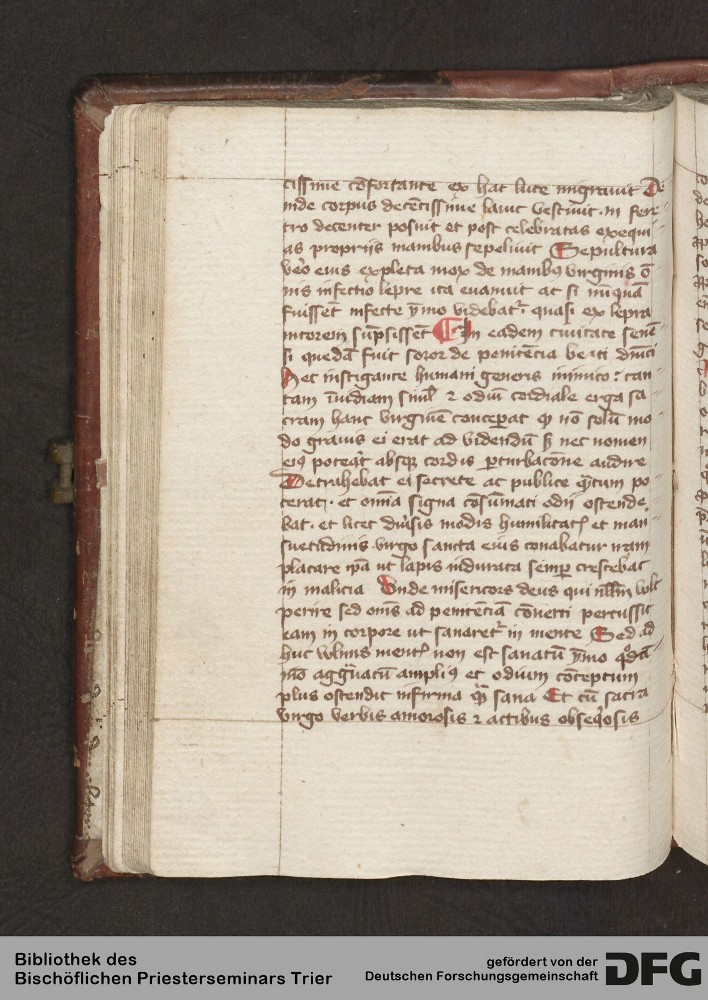 cissime cōfortante ex hac luce migravit De
inde corpus decētissime lavit vestivit · in fere
tro decenter posuit et post celebratas exequi
as propriis manibus sepelivit Sepultura
v̄o eius expleta mox de manibꝰ virginis ō
nis infectio lepre ita evanuit ac si nūquā
fuissēt infecte ymo videbat᷑ · quasi ex lepra
nitorem sūpsissēt In eadem civitate senē
si quedā fuit soror de penitēcia beati dn̄ici
Hec instigante humani generis inimico : tan
tam īvidiam simul ⁊ odiū cordiale erga sa
cram hanc virginē conceperat qꝫ nō solū mo
do gravis ei erat ad videndū sꝫ nec nomen
eiꝰ poteᷓt absqꝫ cordis ꝑturbacōne audire
Detrahebat ei secrete ac publice qͣtum po
terat · et om̄ia signa cōsūmati odii ostende
bat · et licet div̄sis modis humilitatꝭ et man
suetudinis virgo sancta eius conabatur iram
placare ip̄a ut lapis indurata semꝑ crescebat
in malicia Unde misericors deus qui nllm̄ vult
perire sed om̄s ad penitēciā cōverti percussit
eam in corpore ut sanaret᷑ in mente Sed ad
huc vulnus mentꝭ non est sanatū ymo qͦdā
mͦo aggͣvatū ampliꝰ et odium cōceptum
plus ostendit infirma qͣ̄ sana Et cū sacra
virgo verbis amorosis ⁊ actibus obseqͦosis
Bibliothek des
Bischöflichen Priesterseminars Trier
gefördert von der
Deutschen Forschungsgemeinschaft
DFG